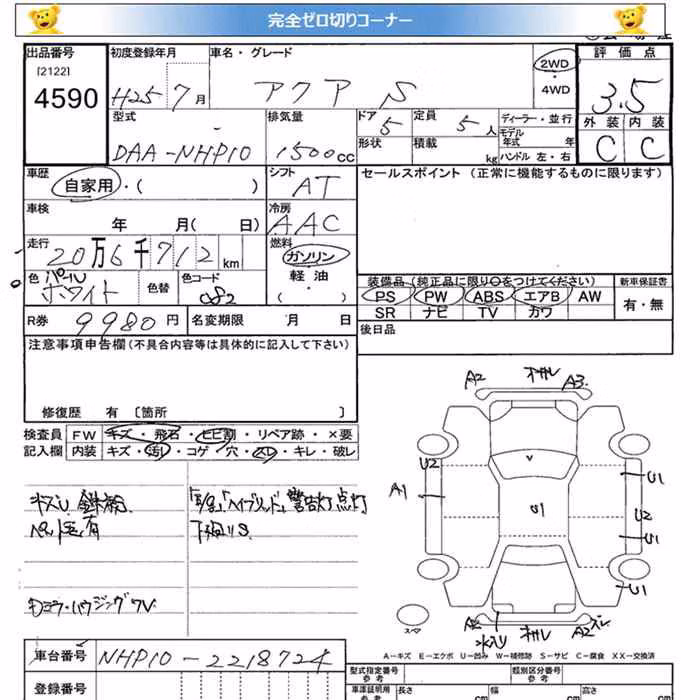 完全ゼロ切りコーナー
出品番号 初度登録年月 車名・グレード 評価点
[2122] 4590 H25年7月 アクア S 2WD ・4WD 3.5
型式 排気量 ドア 5 定員 5人 ディーラー・並行 外装 内装
形状 積載 kg モデル年式 年 ハンドル 左・右
DAA-NHP10 1500cc C C
車歴 シフト セールスポイント (正常に機能するものに限ります)
自家用・( ) AT
車検 冷房
年 月( 日) AAC
走行 燃料
20万6千712km ガソリン
色 パールホワイト 色替 色コード 082 軽油 ・( ) 装備品(純正品に限り○をつけてください) 新車保証書
PS PW ABS エアB AW 有・無
R券 9980円 名変期限 月 日 SR ナビ TV カワ
注意事項申告欄(不具合内容等は具体的に記入して下さい) 後日品
修復歴 有 〔箇所 〕
検査員 FW キズ・飛石・ヒビ割・リペア跡・×要
記入欄 内装 キズ・汚レ・コゲ・穴・スレ・キレ・破レ
警告灯点灯
A2 A3
U2 U1
A1 U1 U2
S1
U1
A2 A2
スペア
A-キズ E-エクボ U-凹み W-補修跡 S-サビ C-腐食 XX-交換済
車台番号 NHP10-2218724 型式指定番号 参考 類別区分番号 参考
登録番号 車庫証明用 参考 長さ cm 幅 cm 高さ cm